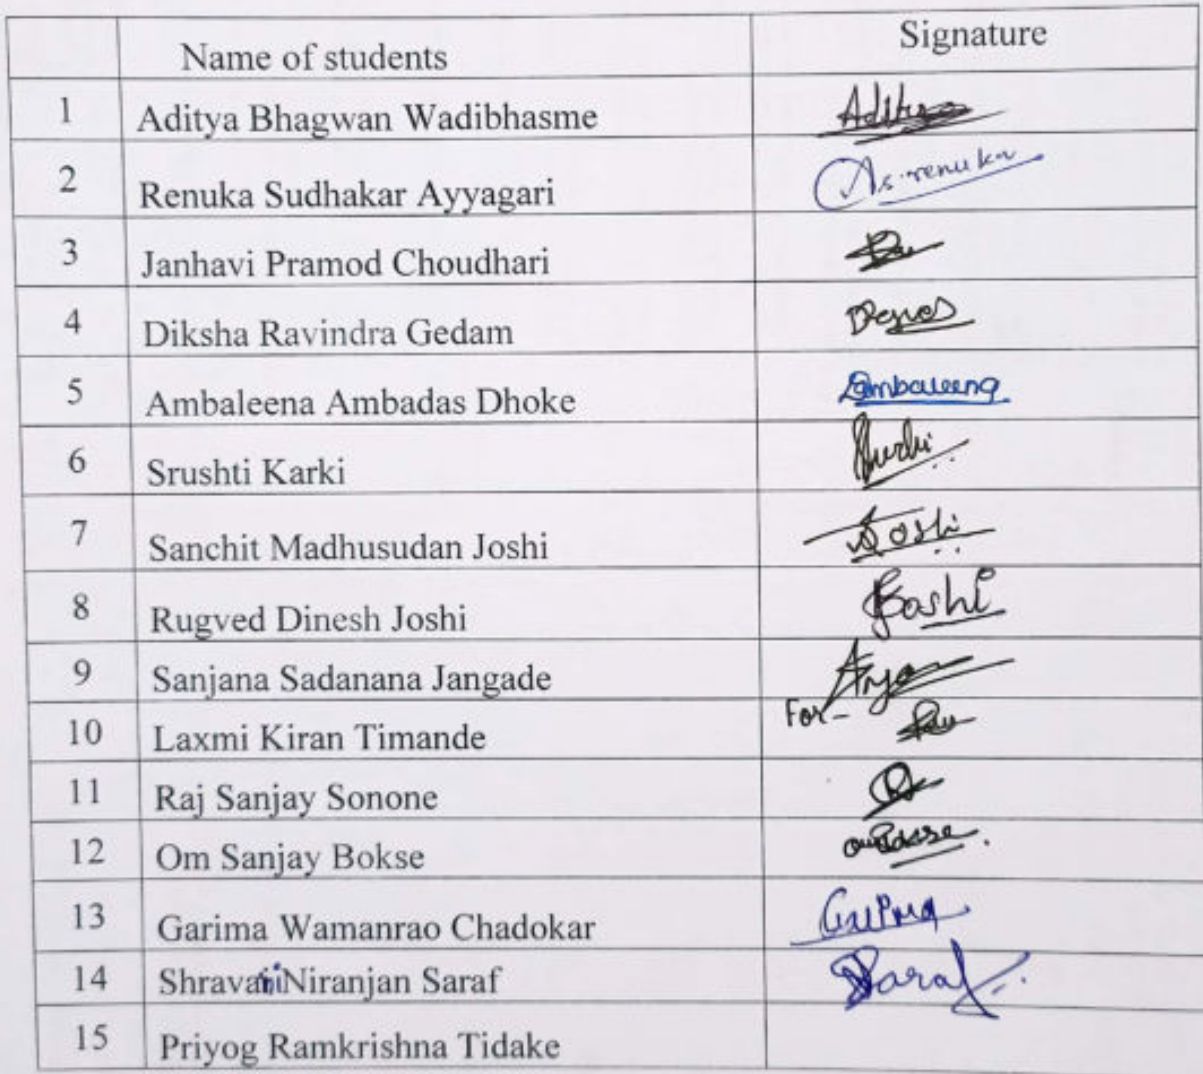 Name of students Signature
1 Aditya Bhagwan Wadibhasme
2 Renuka Sudhakar Ayyagari As.renuka
3 Janhavi Pramod Choudhari
4 Diksha Ravindra Gedam
5 Ambaleena Ambadas Dhoke Ambaleena
6 Srushti Karki
7 Sanchit Madhusudan Joshi Joshi
8 Rugved Dinesh Joshi Joshi
9 Sanjana Sadanana Jangade
10 Laxmi Kiran Timande For-
11 Raj Sanjay Sonone
12 Om Sanjay Bokse
13 Garima Wamanrao Chadokar Garima
14 Shravani Niranjan Saraf Saraf
15 Priyog Ramkrishna Tidake